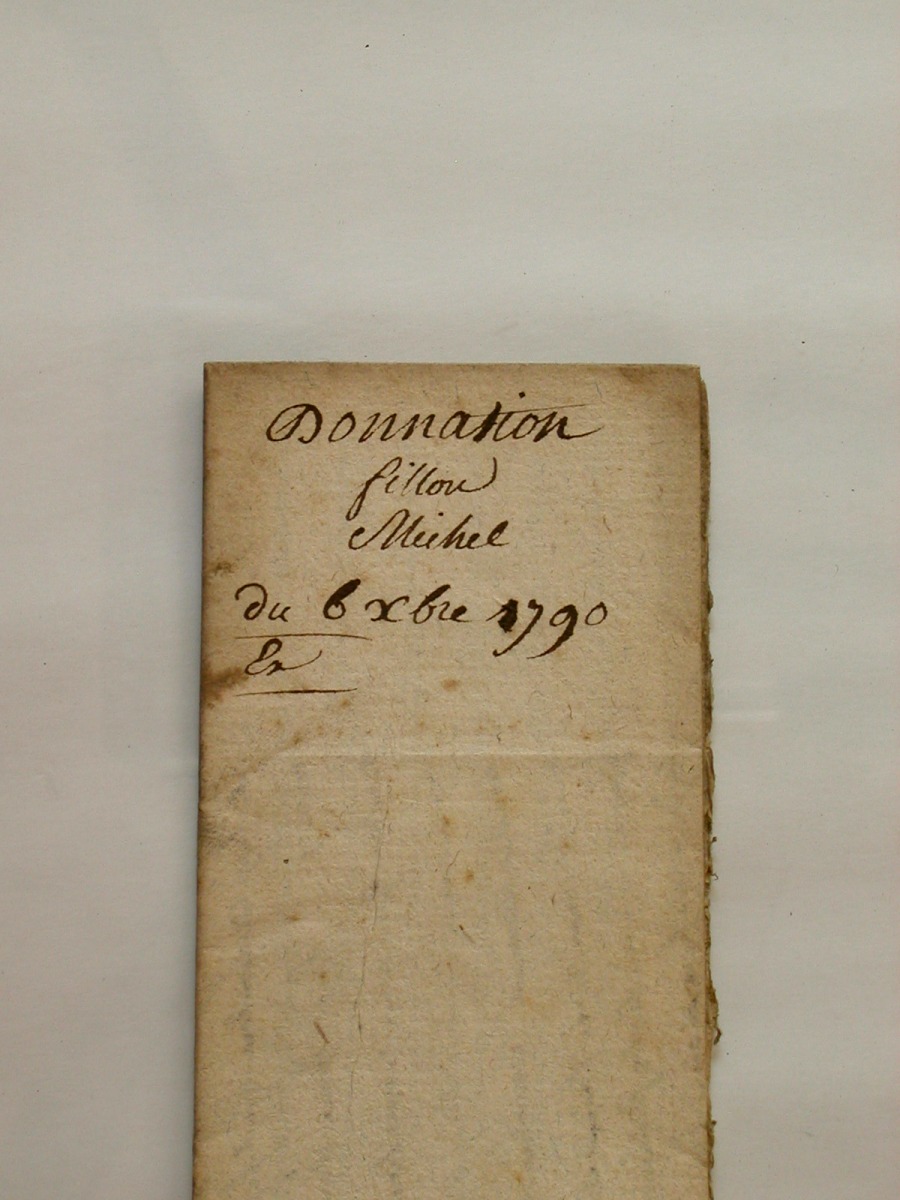 Donnation
fillon
Michel
du 6 xbre 1790